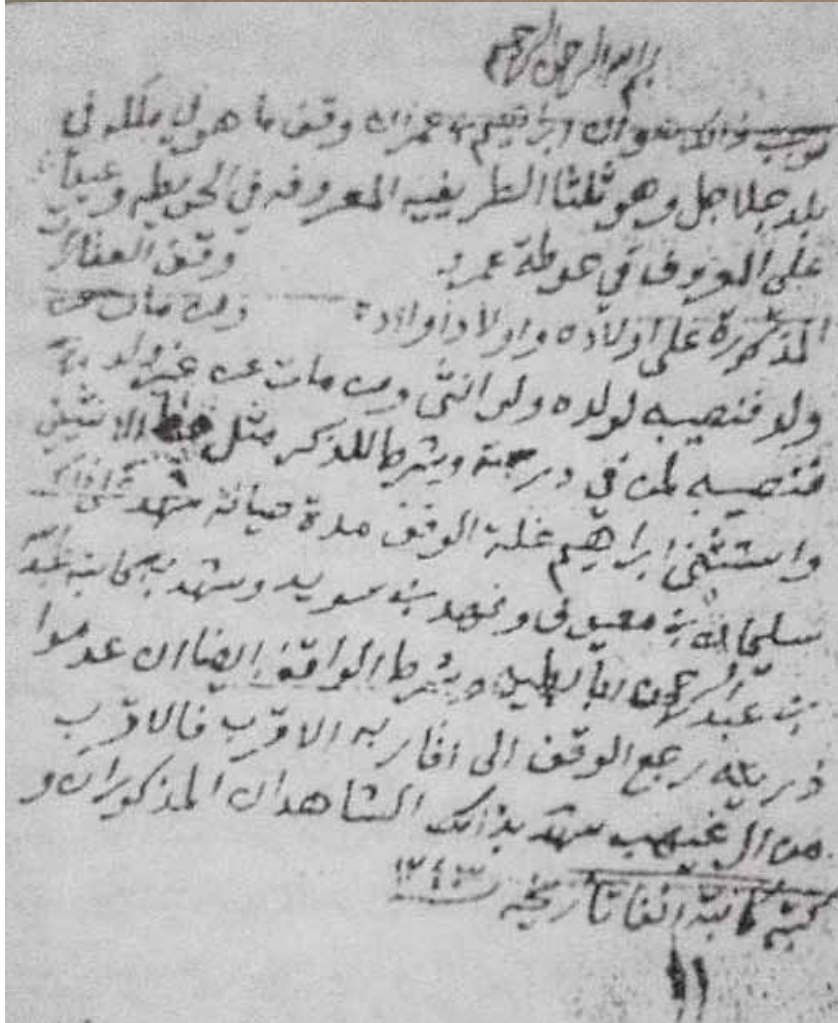 بسم الله الرحمن الرحيم
ابراهيم بن عمران وقف ما هو في ملكه في
بلد جلاجل وهو ثلثا الطريفيه المعروفه في الحويطه وعينا
على المعروف في حوطة عمر وقف العقار
المذكورة على اولاده واولاد اولاده ومن مات عن
ولد فنصيبه لولده ولو انثى ومن مات عن غير ولد
فنصيبه لمن في درجته وشرط للذكر مثل حظ الانثيين
واستثنى ابراهيم غلة الوقف مدة حياته شهد على ذلك
سليمان بن معيوف وفهد بن سويد وشهد به كاتبه عبد الله
بن عبد الرحمن وشرط الواقف ايضا ان عدموا
ذريته رجع الوقف الى اقاربه الاقرب فالاقرب
من ال غيهب شهد بذالك الشاهدان المذكوران و
كتبه كاتبه انفا تاريخه ١٢٤٣